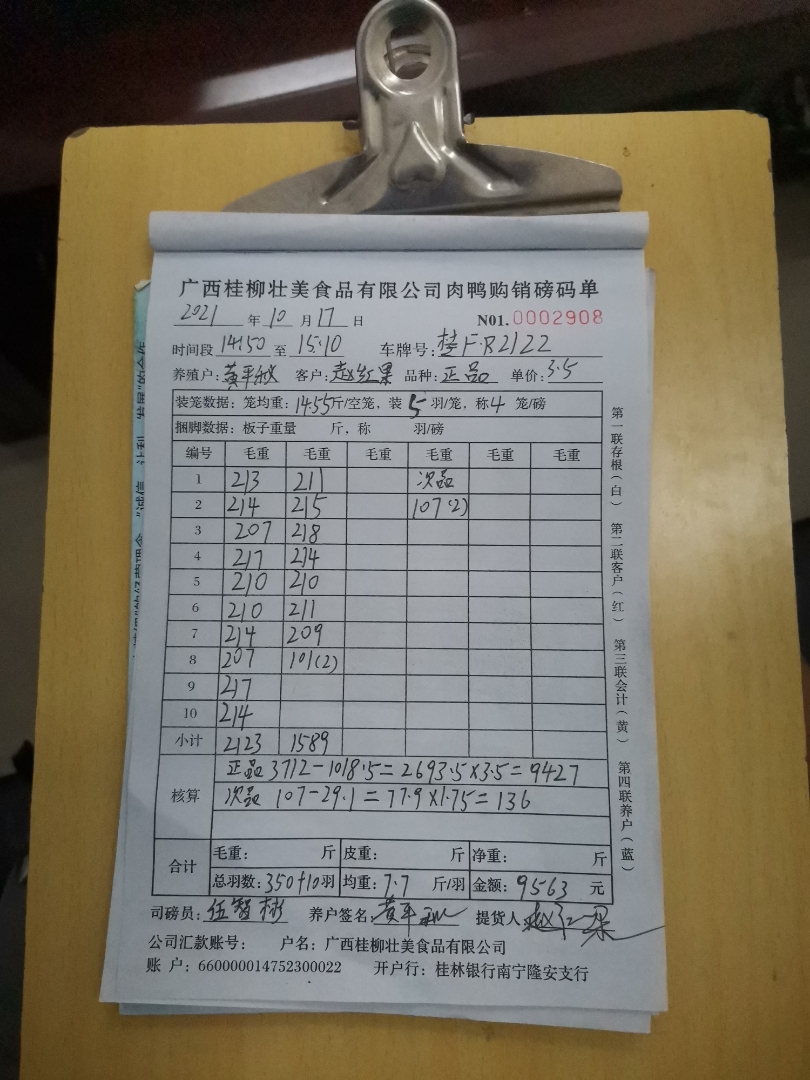 广西桂柳壮美食品有限公司肉鸭购销磅码单
2021 年 10 月 17 日 N01.0002908
时间段 14:50 至 15:10 车牌号: 桂F·R2122
养殖户: 黄平秋 客户: 赵红果 品种: 正品 单价: 3.5
装笼数据: 笼均重: 14.55斤/空笼, 装 5 羽/笼, 称 4 笼/磅
捆脚数据: 板子重量 斤, 称 羽/磅
编号 毛重 毛重 毛重 毛重 毛重 毛重
1 213 211 次品
2 214 215 107(2)
3 207 218
4 217 214
5 210 210
6 210 211
7 214 209
8 207 101(2)
9 217
10 214
小计 2123 1589
正品 3712-1018.5=2693.5×3.5=9427
核算 次品 107-29.1=77.9×1.75=136
合计 毛重: 斤 皮重: 斤 净重: 斤
总羽数: 350+10羽 均重: 7.7 斤/羽 金额: 9563 元
司磅员: 伍智彬 养户签名: 黄平秋 提货人 赵红果
公司汇款账号: 户名: 广西桂柳壮美食品有限公司
账 户: 660000014752300022 开户行: 桂林银行南宁隆安支行
第一联存根(白) 第二联客户(红) 第三联会计(黄) 第四联养户(蓝)